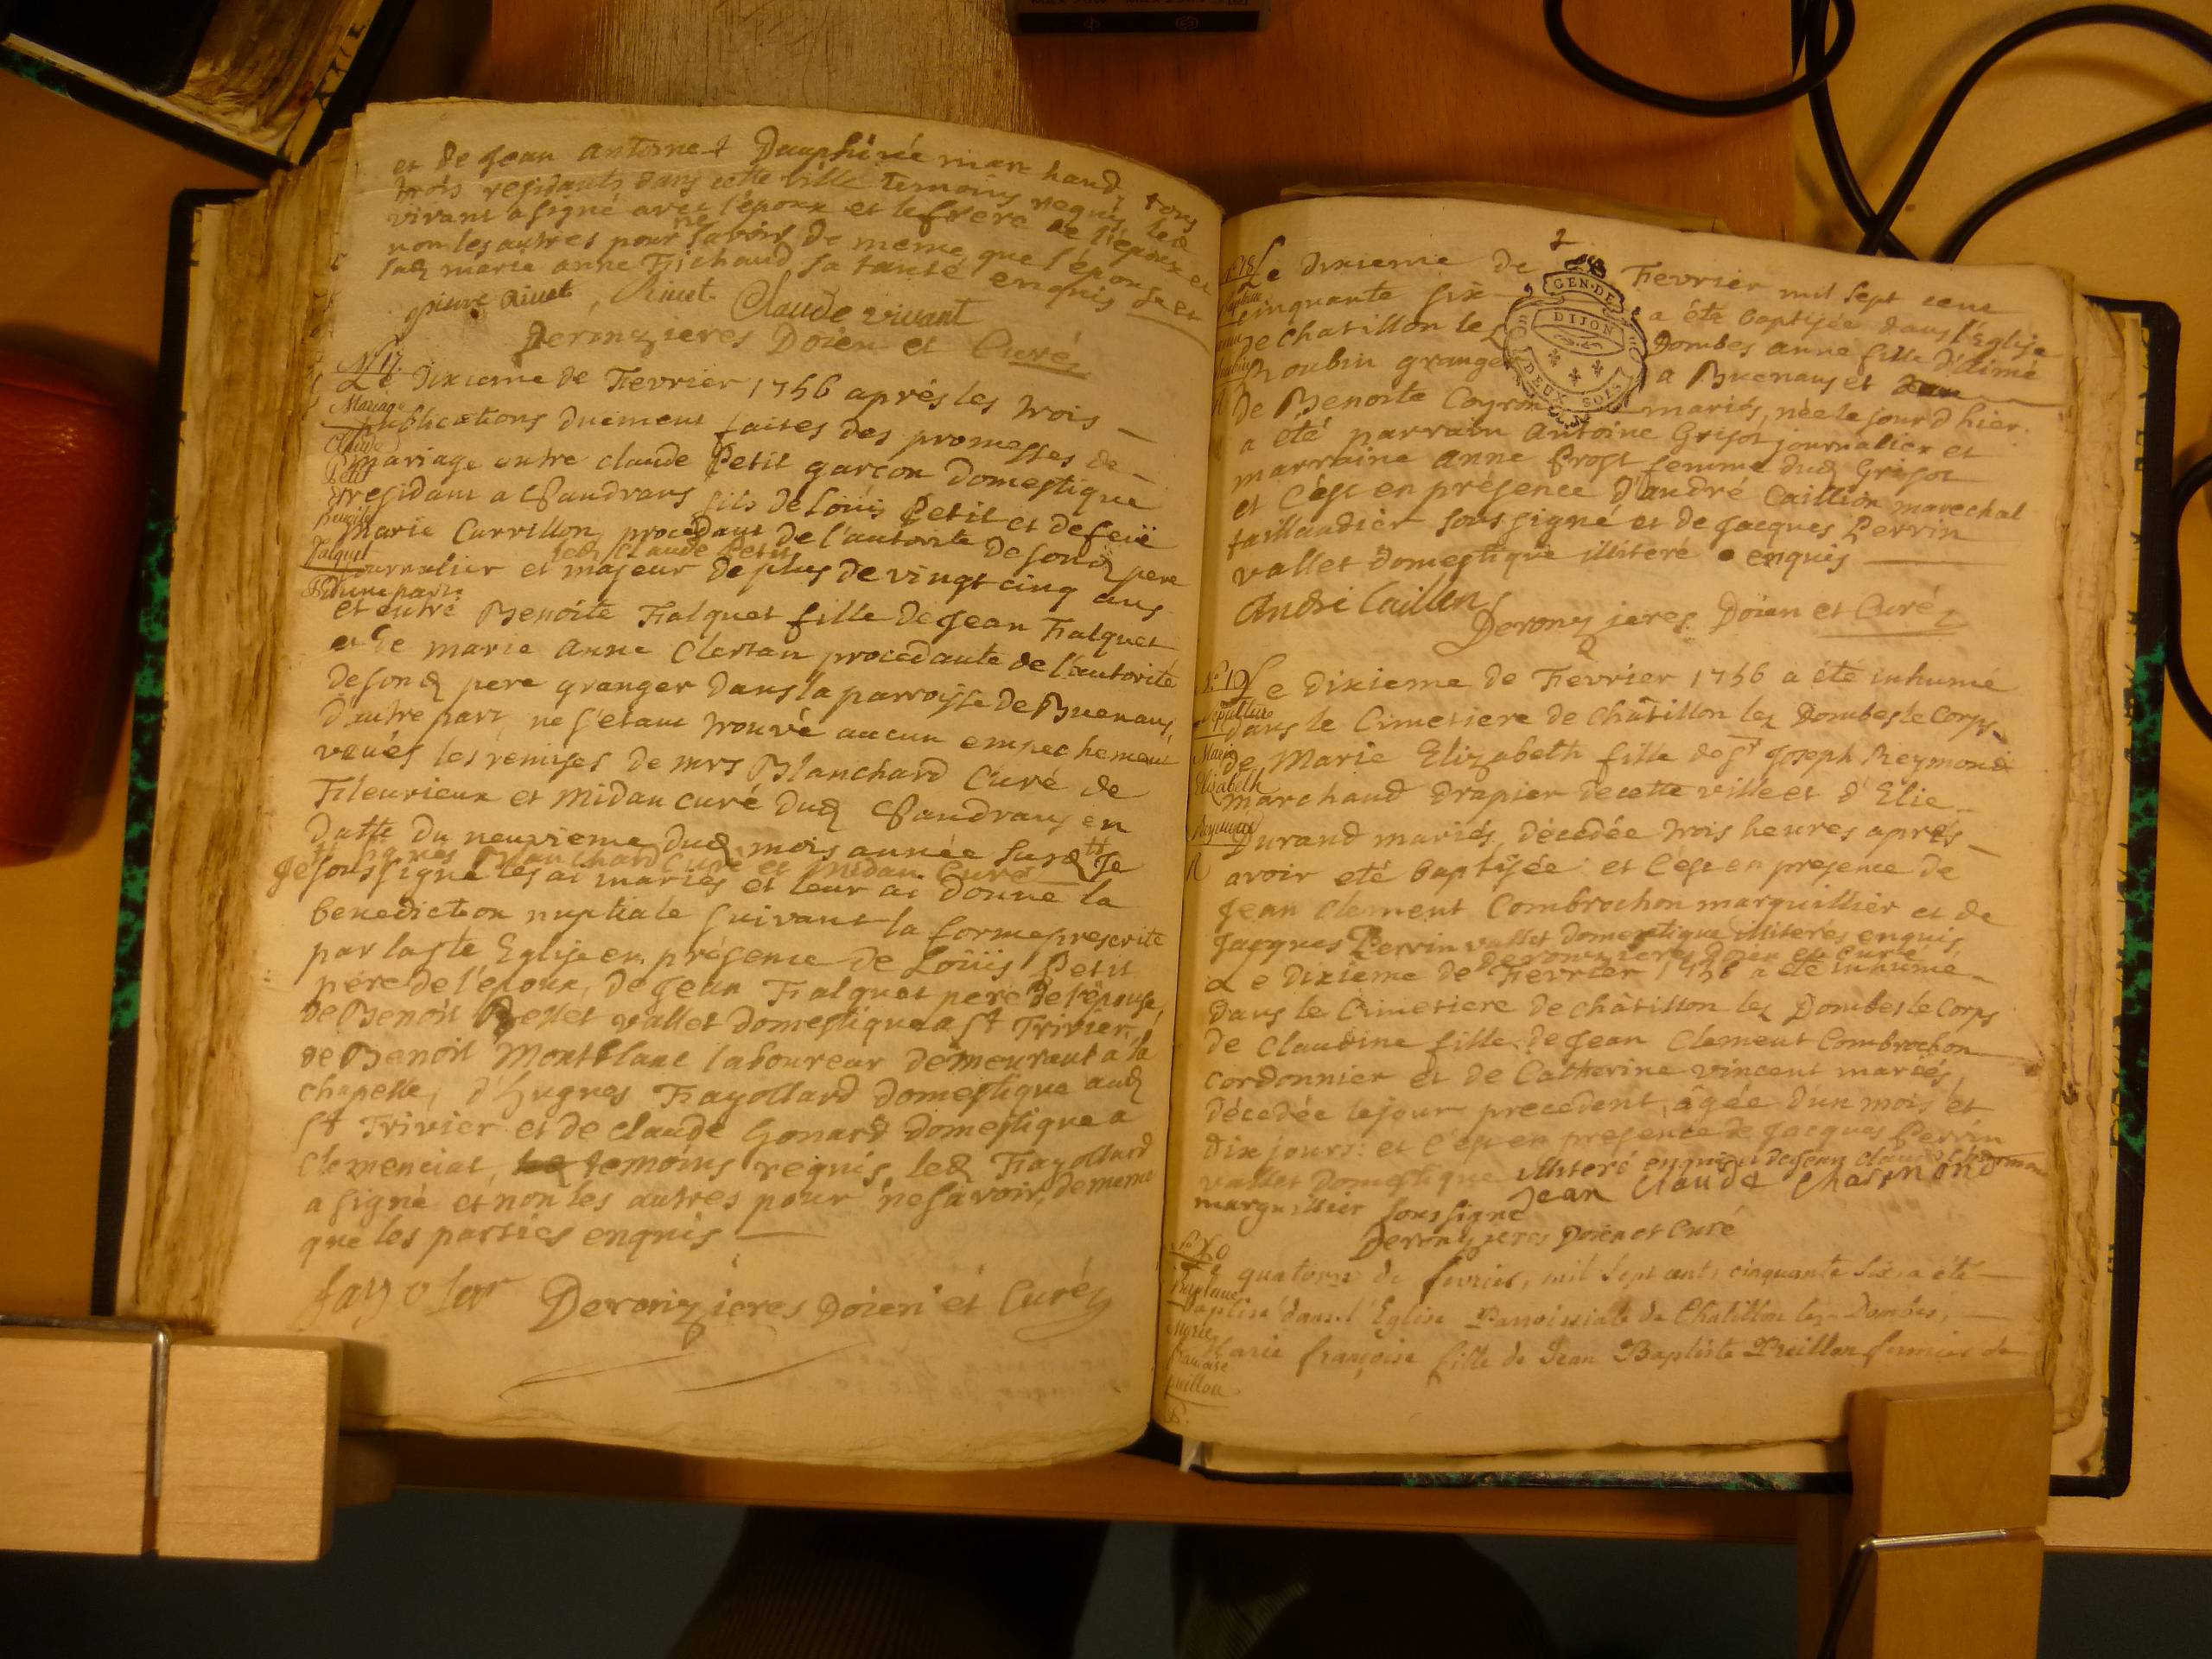 et de Jean Antoine Dauphinée marchand, tous
trois residants dans cette ville temoins requis led
vivant a signé avec l'epoux et le frere de l'epouse et
non les autres pour ne savoir de meme que l'epouse et
lad marie anne Fichaud sa tante enquis
pierre Rivet Rivet Claude vivant
Deronzieres Doien et Curé
N° 17.
Mariage
Claude
Petit
Benoite
Falquet
Le Dixieme de Fevrier 1756 après les trois
publications duement faites des promesses de
mariage entre claude Petit garçon Domestique
residant a Sandrans fils de Loüis Petit et de feüe
Marie Curvillon procedant de l'autorité de sond pere
led claude Petit
journalier et majeur de plus de vingt cinq ans
d'une part
et entre Benoite Falquet fille de Jean Falquet
et de marie Anne Clertan procedante de l'autorité
de sond pere granger dans la parroisse de Buenans,
d'autre part, ne s'etant trouvé aucun empechement
veües les remises de mrs Blanchard Curé de
Fleurieux et Midan curé dud Sandrans en
datte du neuvieme dud mois année susd Je
signés Blanchard Curé et Midan Curé
Je soussigné les ai mariés et leur ai donné la
benediction nuptiale suivant la forme prescrite
par la ste Eglise en présence de Loüis Petit
père de l'epoux, de Jean Falquet pere de l'épouse,
de Benoît Bellet vallet domestique a st Trivier,
de Benoit Montblanc laboureur demeurant a la
chapelle, d'hugues Fayollard domestique aud
st Trivier et de claude Gonard domestique a
Clemenciat, temoins requis, led Fayollard
a signé et non les autres pour ne savoir, de meme
que les parties enquis
fayolar Deronzieres Doien et Curé
2
GEN·DE
DIJON
DEUX SOLS
N° 18
Le Dixieme de Fevrier mil sept cent
cinquante six a été baptisée dans l'Eglise
de Chatillon les Dombes anne fille d'Aimé
Loubin granger a Buenans et
de Benoite Coyron mariés, née le jour d'hier.
a été parrain Antoine Grisot journalier et
marraine anne Prost femme dud Grisot
et c'est en présence d'andré Caillion marechal
taillandier soussigné et de Jacques Perrin
vallet domestique illiteré enquis
André Caillen
Deronzieres Doien et Curé
N° 19
Sepulture
Marie
Elisabeth
Reymond
Le Dixieme de Fevrier 1756 a été inhumé
dans le Cimetiere de Châtillon les Dombes le Corps
de Marie Elizabeth fille de sr Joseph Reymond
marchand drapier de cette ville et d'Elie
Durand mariés, décédée trois heures après
avoir eté baptisée: et c'est en presence de
Jean Clement Combrochon marguillier et de
Jacques Perrin vallet domestique illiterés enquis
Deronzieres Doien et Curé
Le Dixieme de Fevrier 1756 a été inhumé
dans le Cimetiere de châtillon les Dombes le Corps
de Claudine fille de Jean Clement Combrochon
cordonnier et de Catherine vincent mariés,
décedée le jour precedent, âgée d'un mois et
dix jours: et c'est en presence de Jacques Perrin
vallet domestique illiteré enquis et de Jean claude
marguillier soussigné Jean Claude Charmond
Deronzieres Doien et Curé
Baptême
Marie
françoise
Puillon
Le quatorze de fevrier, mil sept cent cinquante six a été
baptisé dans l'Eglise Parroissiale de Chatillon les-Dombes,
Marie françoise fille de Jean Baptiste Puillon fermier de